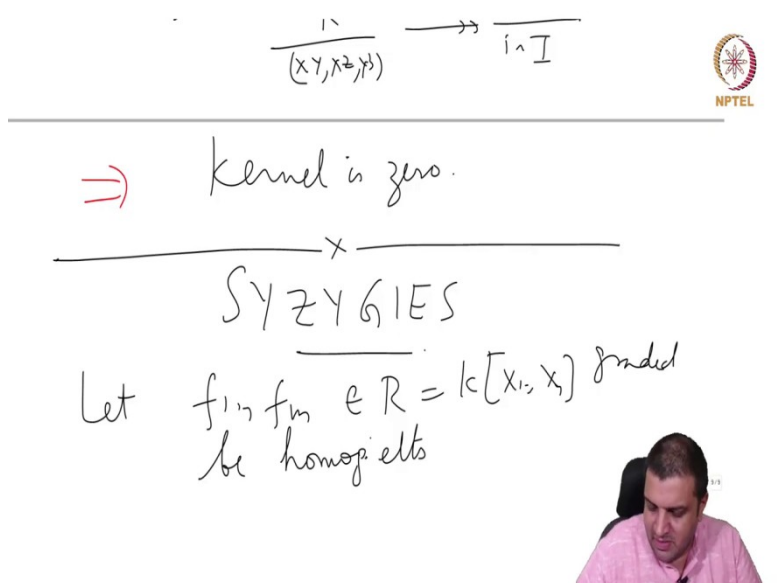 (XY, XZ, Y³) →→ in I
NPTEL
⇒ Kernel is zero.
X
SYZYGIES
Let f₁,, fₘ ∈ R = k[X₁,, Xₙ] graded
be homog. elts
3/3